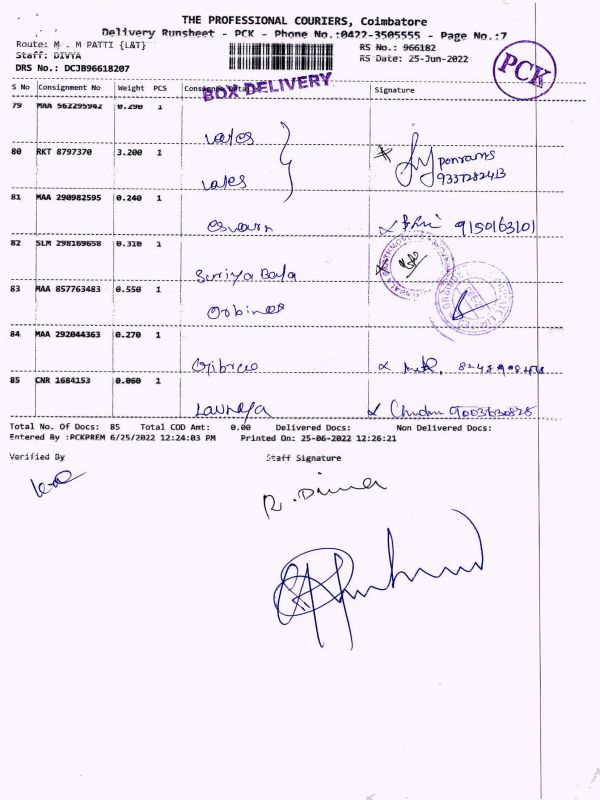 THE PROFESSIONAL COURIERS, Coimbatore
Delivery Runsheet - PCK - Phone No.:0422-3505555 - Page No.:7
Route: M . M PATTI {L&T}
RS No.: 966182
Staff: DIVYA
RS Date: 25-Jun-2022
PCK
DRS No.: DCJB96618207
S No Consignment No Weight PCS Consignee Details Signature
BOX DELIVERY
79 MAA 562295942 0.290 1
80 RKT 8797370 3.200 1
ponrams
9337282413
81 MAA 290982595 0.240 1
9150163101
82 SLM 298169658 0.310 1
Suriya Bala
83 MAA 857763483 0.550 1
84 MAA 292044363 0.270 1
85 CNR 1684153 0.060 1
Lavnaya
9003630825
Total No. Of Docs: 85 Total COD Amt: 0.00 Delivered Docs: Non Delivered Docs:
Entered By :PCKPREM 6/25/2022 12:24:03 PM Printed On: 25-06-2022 12:26:21
Verified By Staff Signature
R. Divya